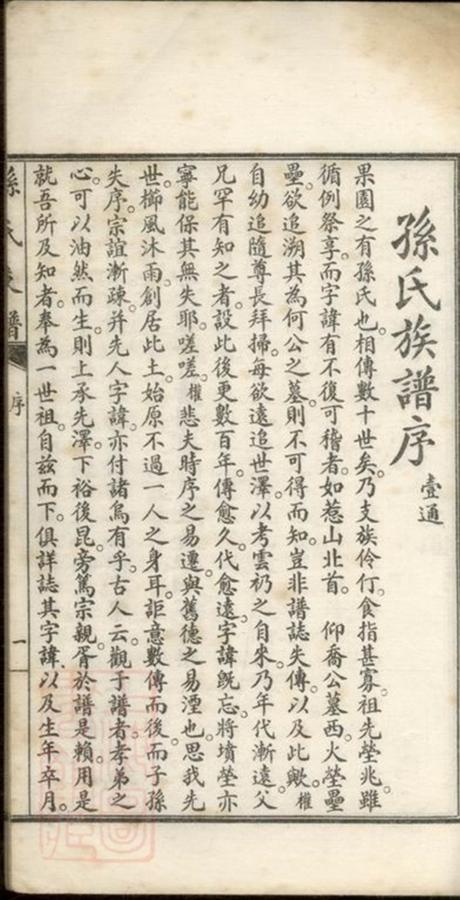 孫氏族譜序
壹通
果園之有孫氏也。相傳數十世矣。乃支族伶仃。食指甚寡。祖先塋兆。雖
循例祭享。而字諱有不復可稽者。如惹山北首。仰喬公墓西。火塋壘
壘。欲追溯其為何公之墓。則不可得而知。豈非譜誌失傳。以及此歟。權
自幼追隨尊長拜掃。每欲遠追世澤。以考雲礽之自來。乃年代漸遠。父
兄罕有知之者。設此後更數百年。傳愈久。代愈遠。字諱旣忘。將墳塋亦
寧能保其無失耶。嗟嗟。權悲夫時序之易遷。與舊德之易湮也。思我先
世。櫛風沐雨。創居此土。始原不過一人之身耳。詎意數傳而後。而子孫
失序。宗誼漸疎。并先人字諱。亦付諸烏有乎。古人云。觀于譜者。孝弟之
心。可以油然而生。則上承先澤。下裕後昆。旁篤宗親。胥於譜是賴。用是
就吾所及知者。奉為一世祖。自茲而下。俱詳誌其字諱。以及生年卒月。
孫氏族譜
序
一